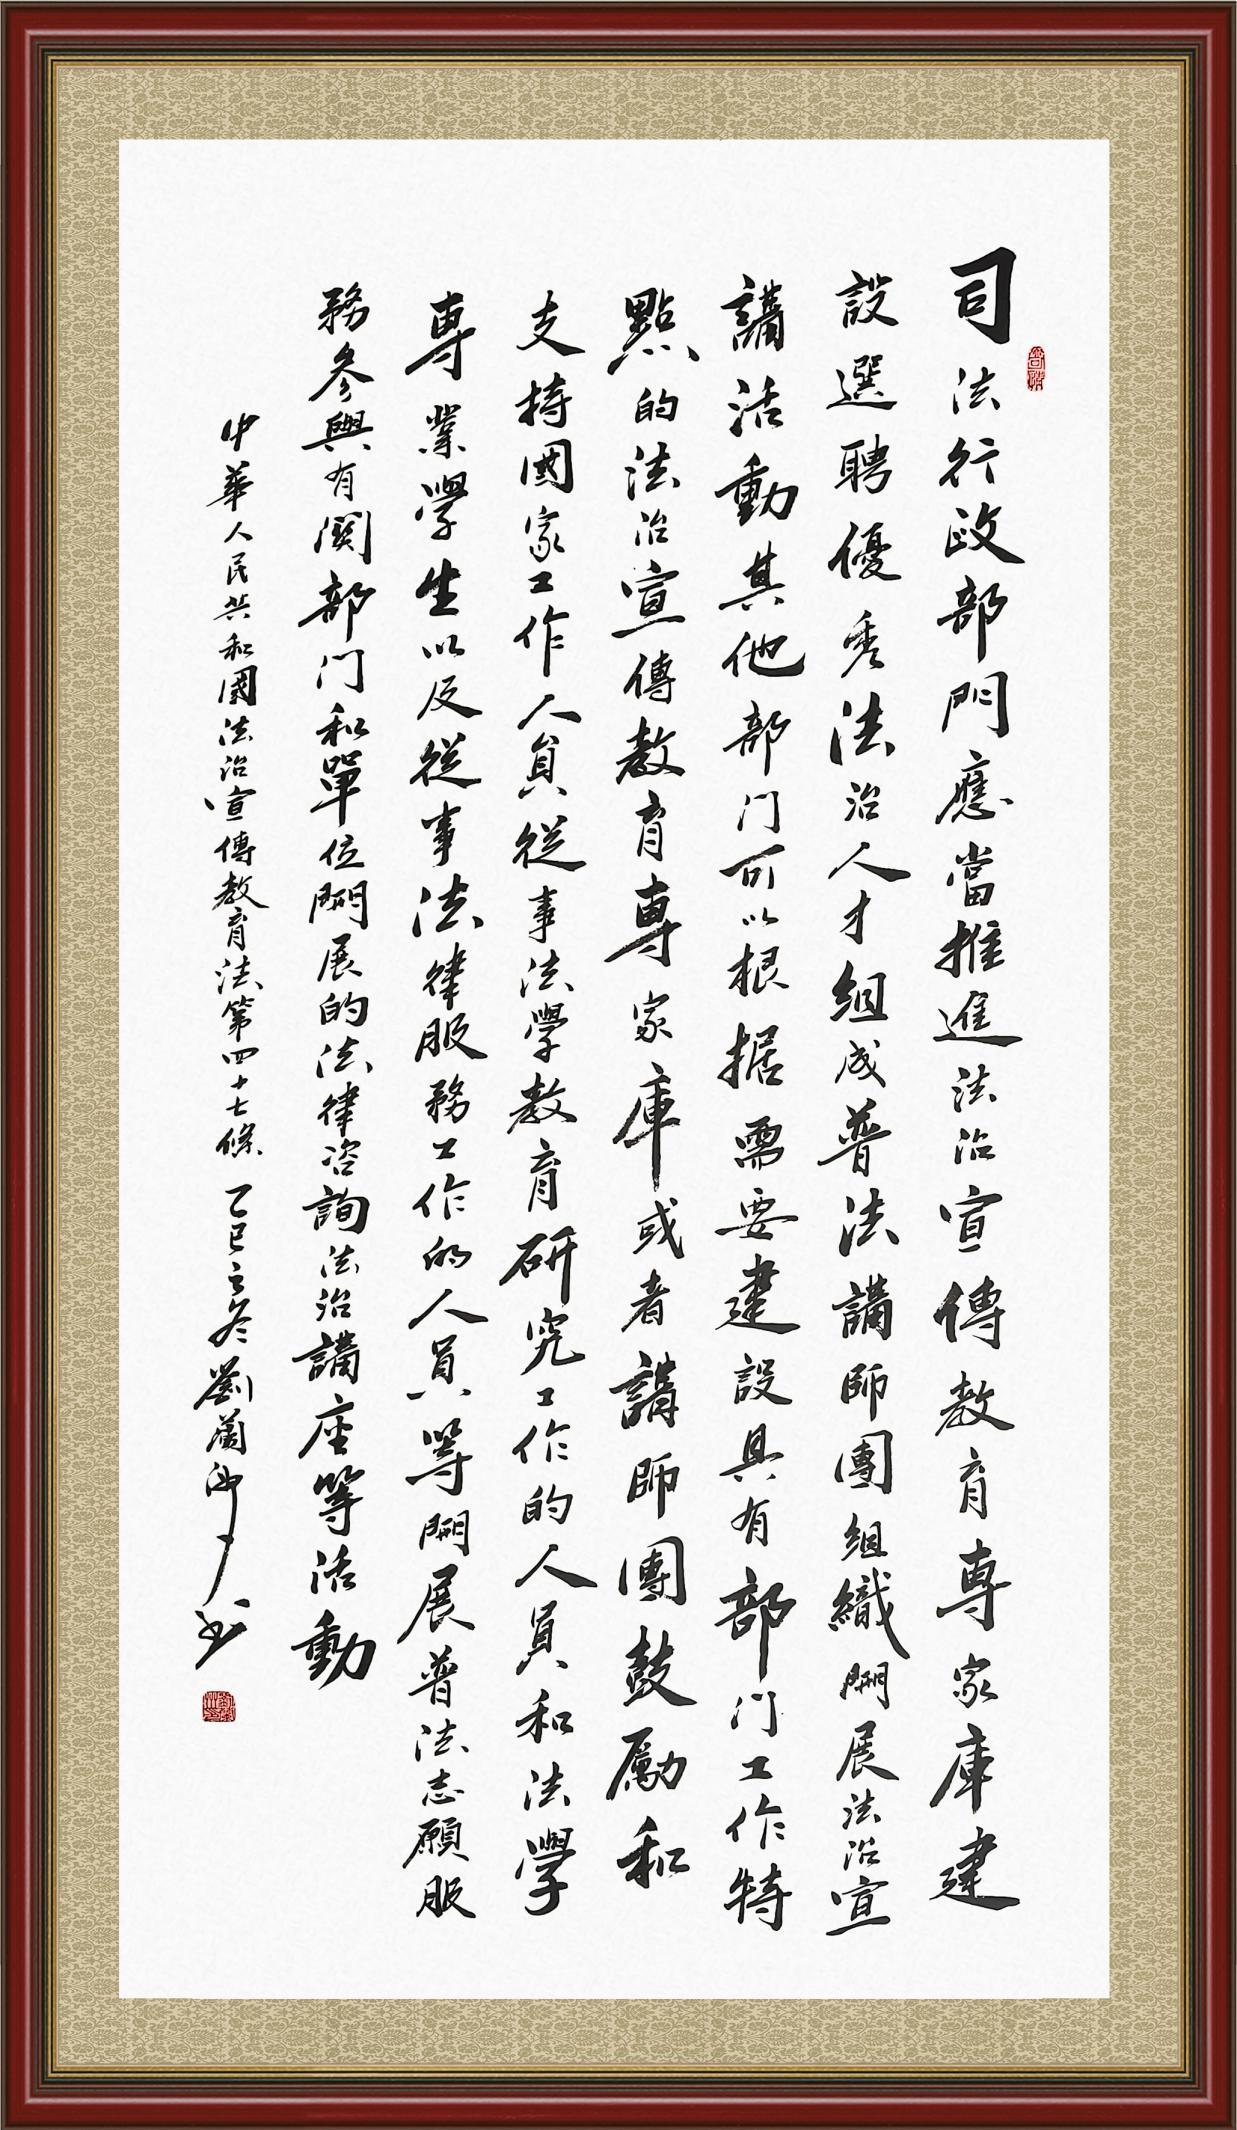 司法行政部門應當推進法治宣傳教育專家庫建
設選聘優秀法治人才組成普法講師團組織開展法治宣
講活動其他部门可以根据需要建設具有部门工作特
點的法治宣傳教育專家庫或者講師團鼓勵和
支持國家工作人員從事法學教育研究工作的人員和法學
專業學生以及從事法律服務工作的人員等開展普法志願服
務參與有関部门和單位開展的法律咨詢法治講座等活動
中華人民共和國法治宣傳教育法第四十七條 乙巳之冬劉蘭 書